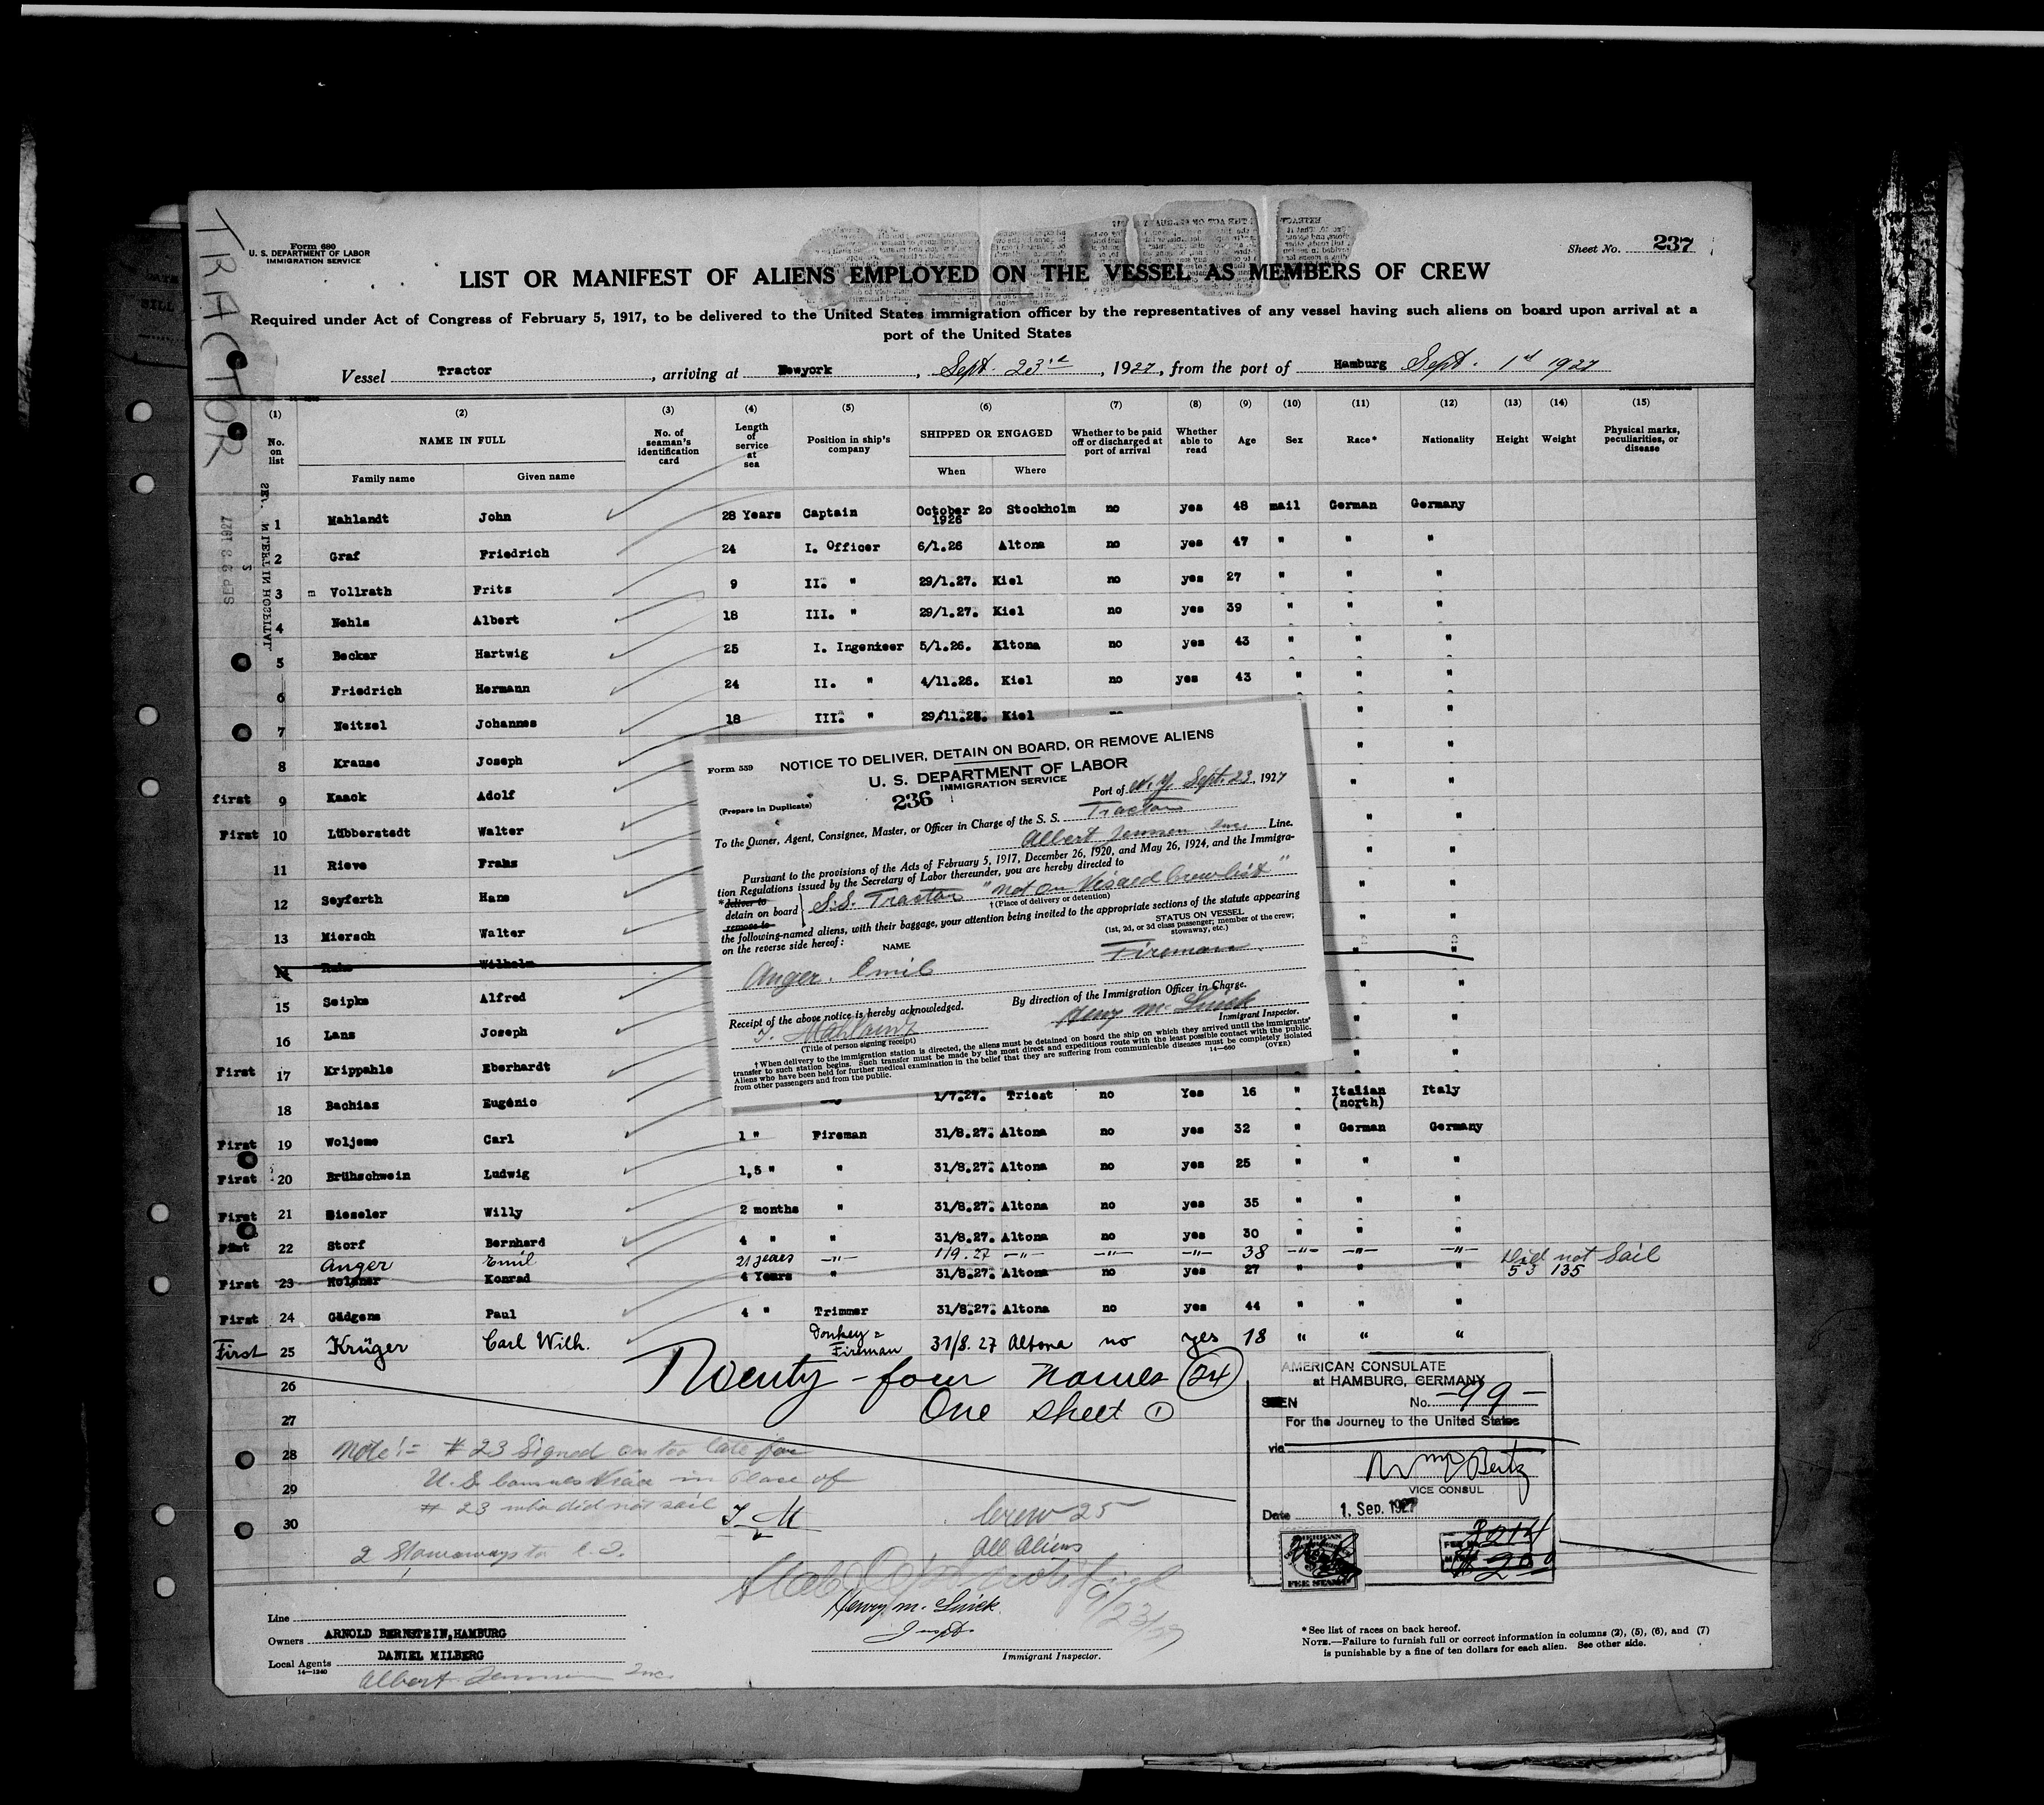 TRACTOR
Form 680
U. S. DEPARTMENT OF LABOR
IMMIGRATION SERVICE
Sheet No. 237
LIST OR MANIFEST OF ALIENS EMPLOYED ON THE VESSEL AS MEMBERS OF CREW
Required under Act of Congress of February 5, 1917, to be delivered to the United States immigration officer by the representatives of any vessel having such aliens on board upon arrival at a
port of the United States
Vessel Tractor, arriving at Newyork, Sept. 23rd, 1927, from the port of Hamburg Sept. 1st 1927
(1) (2) (3) (4) (5) (6) (7) (8) (9) (10) (11) (12) (13) (14) (15)
No. on list NAME IN FULL No. of seaman's identification card Length of service at sea Position in ship's company SHIPPED OR ENGAGED Whether to be paid off or discharged at port of arrival Whether able to read Age Sex Race* Nationality Height Weight Physical marks, peculiarities, or disease
Family name Given name When Where
SEP 23 1927
1 Mahlandt John 28 Years Captain October 20 1926 Stockholm no yes 48 mail German Germany
2 Graf Friedrich 24 I. Officer 6/1.26 Altona no yes 47 " " "
3 m Vollrath Fritz 9 II. " 29/1.27. Kiel no yes 27 " " "
4 Nehls Albert 18 III. " 29/1.27. Kiel no yes 39 " " "
5 Becker Hartwig 25 I. Ingenieer 5/1.26. Altona no yes 43 " " "
6 Friedrich Hermann 24 II. " 4/11.26. Kiel no yes 43 " " "
7 Neitzel Johannes 18 III. " Kiel " "
8 Krause Joseph " "
first 9 Kaack Adolf " "
First 10 Lübberstedt Walter " "
11 Rieve " "
12 Seyferth Hans " "
13 Miersch Walter " "
14 Wilhelm " "
15 Seipke Alfred " "
16 Lans Joseph " "
First 17 Krippahle Eberhardt " "
18 Bachiaz Eugénio 1/7.27. Triest no Yes 16 " Italian (north) Italy
First 19 Woljeme Carl 1 " Fireman 31/8.27. Altona no yes 32 " German Germany
First 20 Brühschwein Ludwig 1,5 " " 31/8.27. Altona no yes 25 " " "
First 21 Bieseler Willy 2 months " 31/8.27. Altona no yes 35 " " "
First 22 Storf Bernhard 4 " " 31/8.27. Altona no yes 30 " " "
Anger Emil 21 years -"- 1/9.27 -"- -"- -"- 38 -"- -"- -"- Did not Sail
First 23 Konrad 4 Years " 31/8.27. Altona no yes 27 " " " 53 135
First 24 Gädgens Paul 4 " Trimmer 31/8.27. Altona no yes 44 " " "
First 25 Krüger Carl Wilh. Donkey= Fireman 31/8.27 Altona no yes 18 " " "
26
27
28
29
30
Form 559
NOTICE TO DELIVER, DETAIN ON BOARD, OR REMOVE ALIENS
U. S. DEPARTMENT OF LABOR
IMMIGRATION SERVICE
236
(Prepare in Duplicate)
Port of N.Y. Sept. 23, 1927
To the Owner, Agent, Consignee, Master, or Officer in Charge of the S. S. Tractor
Albert Jensen Inc. Line.
Pursuant to the provisions of the Acts of February 5, 1917, December 26, 1920, and May 26, 1924, and the Immigra-
tion Regulations issued by the Secretary of Labor thereunder, you are hereby directed to
*deliver to
detain on board
remove to
S.S. Tractor "not on Visaed Crew list"
†(Place of delivery or detention)
the following-named aliens, with their baggage, your attention being invited to the appropriate sections of the statute appearing
on the reverse side hereof:
NAME
STATUS ON VESSEL
(1st, 2d, or 3d class passenger; member of the crew;
stowaway, etc.)
Anger. Emil Fireman
Receipt of the above notice is hereby acknowledged.
By direction of the Immigration Officer in Charge.
J. Mahlandt
Henry M. Snick
(Title of person signing receipt)
Immigrant Inspector.
†When delivery to the immigration station is directed, the aliens must be detained on board the ship on which they arrived until the immigrants'
transfer to such station begins. Such transfer must be made by the most direct and expeditious route with the least possible contact with the public.
Aliens who have been held for further medical examination in the belief that they are suffering from communicable diseases must be completely isolated
from other passengers and from the public.
14—660 (OVER)
Twenty-four names (24)
One sheet (1)
Note:= #23 Signed on too late for
U.S. Consuls Visa in Place of
#23 who did not sail
J M
2 Stowaways
Crew 25
All Aliens
AMERICAN CONSULATE
at HAMBURG, GERMANY
SEEN No. -99-
For the Journey to the United States
via
VICE CONSUL
Date 1. Sep. 1927
FEE STAMP
9/23/27
Henry M. Snick
Inspt.
Immigrant Inspector.
Line
Owners ARNOLD BERNSTEIN,HAMBURG
Local Agents DANIEL MILBERG
14—1240
Albert Jensen Inc.
*See list of races on back hereof.
NOTE.—Failure to furnish full or correct information in columns (2), (5), (6), and (7)
is punishable by a fine of ten dollars for each alien. See other side.